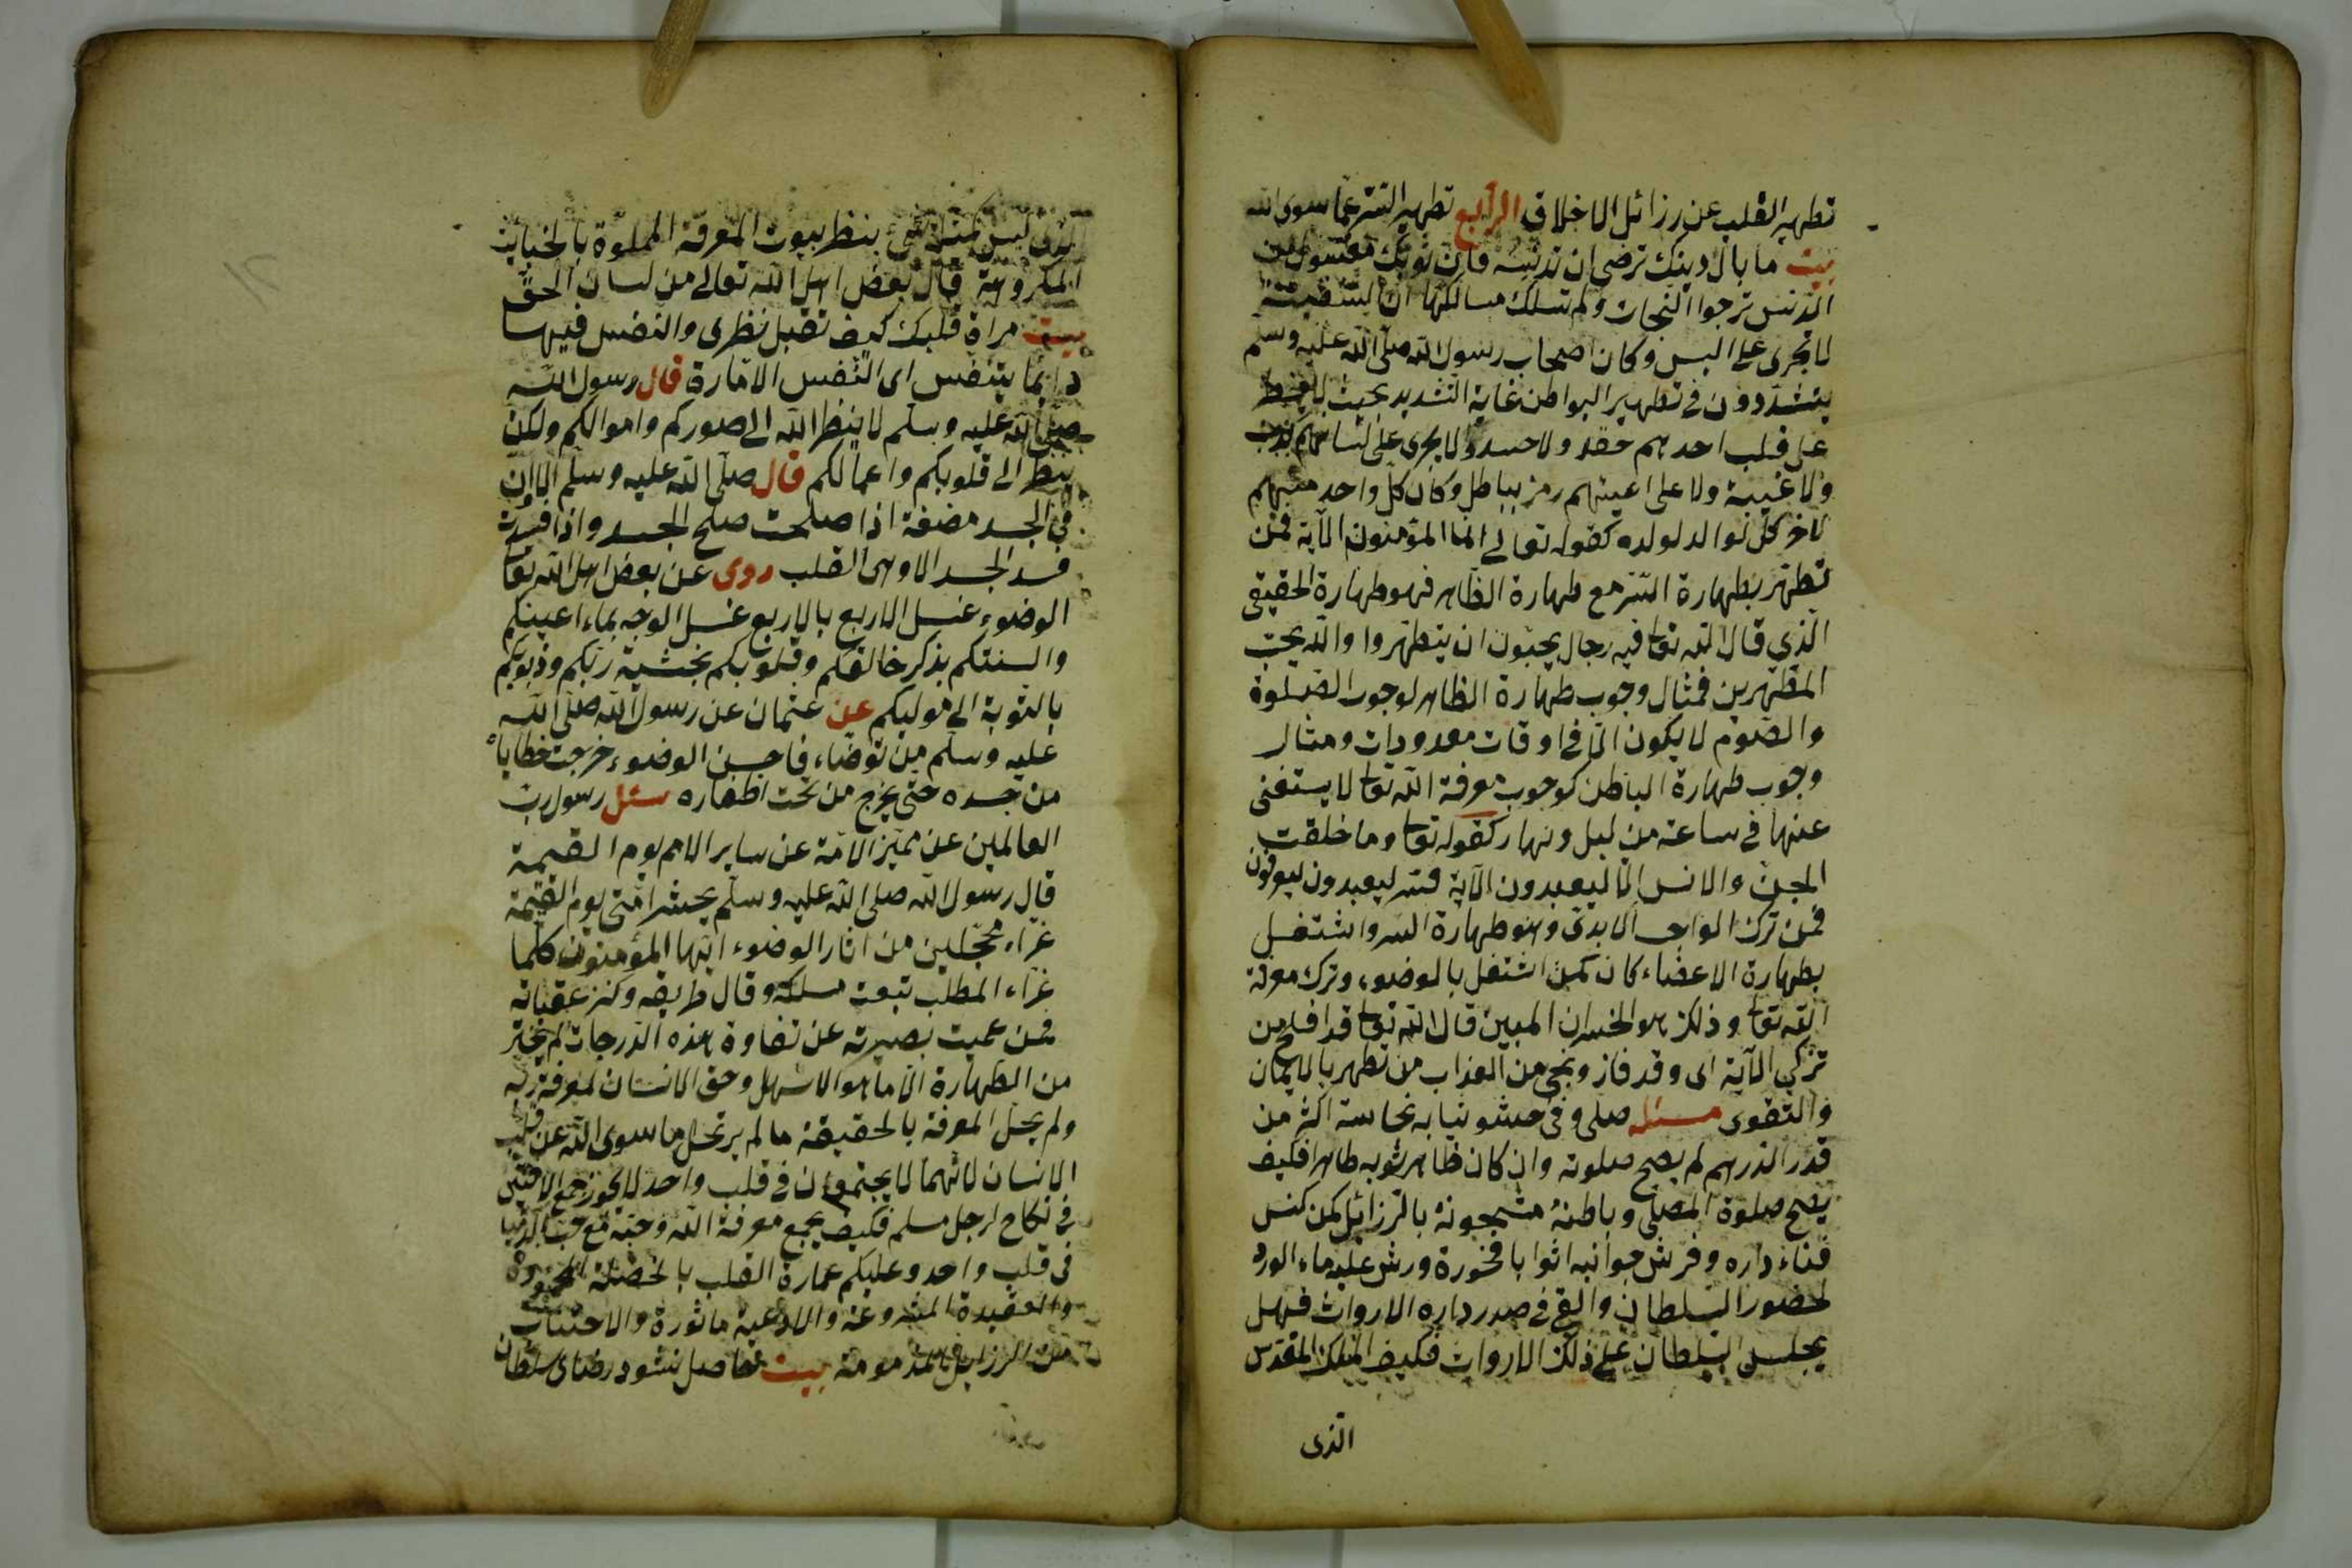 تطهير القلب عن رزائل الاخلاق الرابع تطهير السر عما سوى الله
بيت ما بال دينك ترضى ان تدنسه فان ثوبك مغسول من
الدنس ترجوا النجات ولم تسلك مسالكها ان السفينة
لا تجرى على اليبس وكان اصحاب رسول الله صلى الله عليه وسلم
يتشددون في تطهير البواطن غاية التشديد بحيث
على قلب احدهم حقد ولا حسد ولا يجرى على لسانهم كذب
ولا غيبة ولا على اعينهم رمز بباطل وكان كل واحد منهم
لاخر كالوالد لولده كقوله تعالى انما المؤمنون الآية فمن
تطهر بطهارة السر مع طهارة الظاهر فهو طهارة الحقيقى
الذي قال الله تعا فيه رجال يحبون ان يتطهروا والله يحب
المطهرين فمثال وجوب طهارة الظاهر لوجوب الصلوة
والصوم لا يكون الا في اوقات معدودات ومثال
وجوب طهارة الباطن كوجوب معرفة الله تعا لا يستغنى
عنها في ساعة من ليل ونهار كقوله تعا وما خلقت
الجن والانس الا ليعبدون الآية فسر ليعبدون ليعرفون
فمن ترك الواجب الابدى وهو طهارة السر واشتغل
بطهارة الاعضاء كان كمن اشتغل بالوضوء وترك معرفة
الله تعا وذلك هو الخسران المبين قال الله تعا قد افلح من
تزكى الآية اى وقد فاز ونجى من العذاب من تطهر بالايمان
والتقوى مسئله صلى وفى حشو ثيابه نجاسة اكثر من
قدر الدرهم لم يصح صلوته وان كان ظاهر ثوبه طاهرا فكيف
يصح صلوة المصلى وباطنه مشحونة بالرزائل كمن كنس
فناء داره وفرش جوانبه اثوابا فخورة ورش عليه ماء الورد
لحضور السلطان والقى في صدر داره الاروات فهل
يجلس السلطان على ذلك الاروات فكيف الملك المقدس
الذى
الذى ليس كمثله شئ ينظر بيوت المعرفة المملوة بالخبائث
المكروهة قال بعض اهل الله تعالى من لسان الحق
بيت مراة قلبك كيف تقبل نظرى والنفس فيها
دائما يتنفس اى النفس الامارة قال رسول الله
صلى الله عليه وسلم لا ينظر الله الى صوركم واموالكم ولكن
ينظر الى قلوبكم واعمالكم قال صلى الله عليه وسلم الا ان
في الجسد مضغة اذا صلحت صلح الجسد واذا فسدت
فسد الجسد الا وهى القلب روى عن بعض اهل الله تعا
الوضوء غسل الاربع بالاربع غسل الوجه بماء اعينكم
والسنتكم بذكر خالقكم وقلوبكم بخشية ربكم وذنوبكم
بالتوبة الى موليكم عن عثمان عن رسول الله صلى الله
عليه وسلم من توضاء فاحسن الوضوء خرجت خطاياه
من جسده حتى يخرج من تحت اظفاره سئل رسول رب
العالمين عن تميز الامة عن ساير الامم يوم القيمة
قال رسول الله صلى الله عليه وسلم يحشر امتى يوم القيمة
غراء محجلين من اثار الوضوء ايها المؤمنون كلما
غراء المطلب تبعت مسلكه وقال طريقه وكنز عقباته
فمن عميت بصيرته عن تفاوة هذه الدرجات لم يختر
من الطهارة الا ما هو الاسهل وحق الانسان لمعرفة ربه
ولم يحل المعرفة بالحقيقة ما لم يرتحل ما سوى الله عن قلب
الانسان لانهما لا يجتمعان في قلب واحد لا يجوز جمع الاختين
في نكاح لرجل مسلم فكيف يجمع معرفة الله وحبه مع حب الدنيا
في قلب واحد وعليكم عمارة القلب بالخصلة
والعقيدة المشروعة والادعية ماثورة والاجتناب
من الرزايل المذمومة بيت حاصل نشود رضاى سلطان